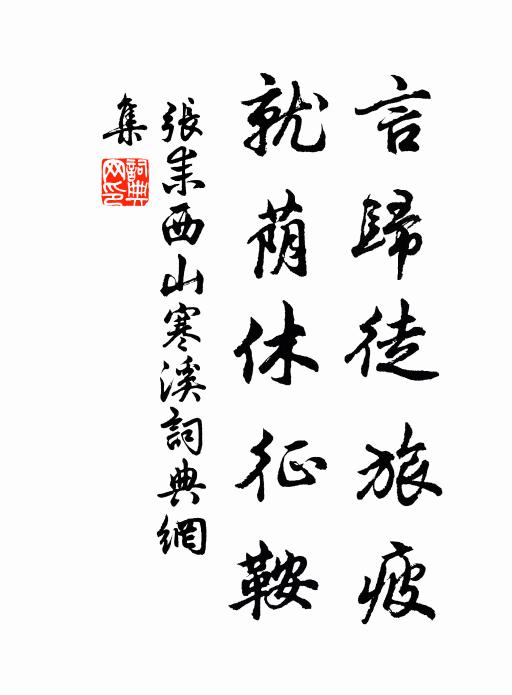 言歸徒旅疲
就蔭休征鞍
張耒西山寒溪詞典網
集
詞典網印